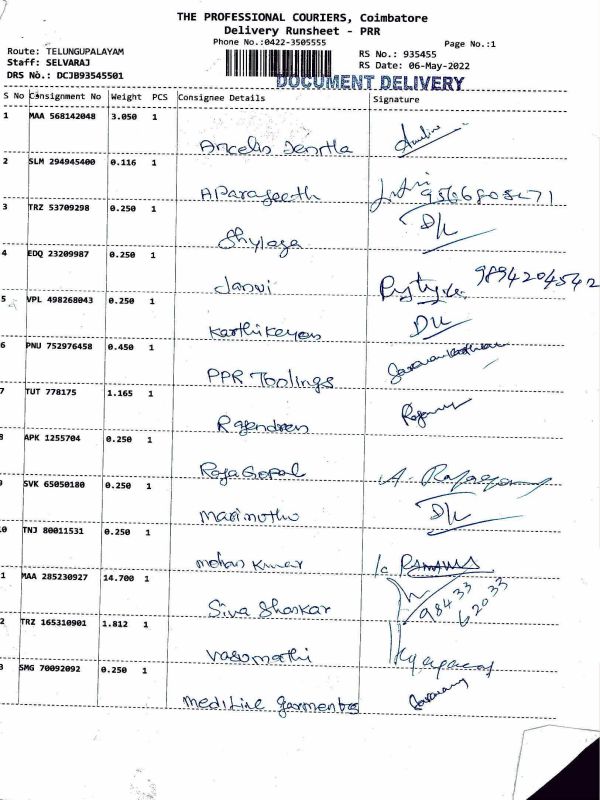 THE PROFESSIONAL COURIERS, Coimbatore
Delivery Runsheet - PRR
Phone No.:0422-3505555
Page No.:1
Route: TELUNGUPALAYAM
Staff: SELVARAJ
DRS No.: DCJB93545501
RS No.: 935455
RS Date: 06-May-2022
DOCUMENT DELIVERY
S No Consignment No Weight PCS Consignee Details Signature
1 MAA 568142048 3.050 1
2 SLM 294945400 0.116 1
3 TRZ 53709298 0.250 1
Shylaja
4 EDQ 23209987 0.250 1
Janvi 9894204542
5 VPL 498268043 0.250 1
Karthikeyan
6 PNU 752976458 0.450 1
PPR Toolings
7 TUT 778175 1.165 1
Rajendren
8 APK 1255704 0.250 1
Raja Gopal
9 SVK 65050180 0.250 1
Marimuthu
0 TNJ 80011531 0.250 1
Mohan Kumar
1 MAA 285230927 14.700 1
Siva Shankar 98433 62033
2 TRZ 165310901 1.812 1
Vasumathi
3 SMG 70092092 0.250 1
Mediline garments